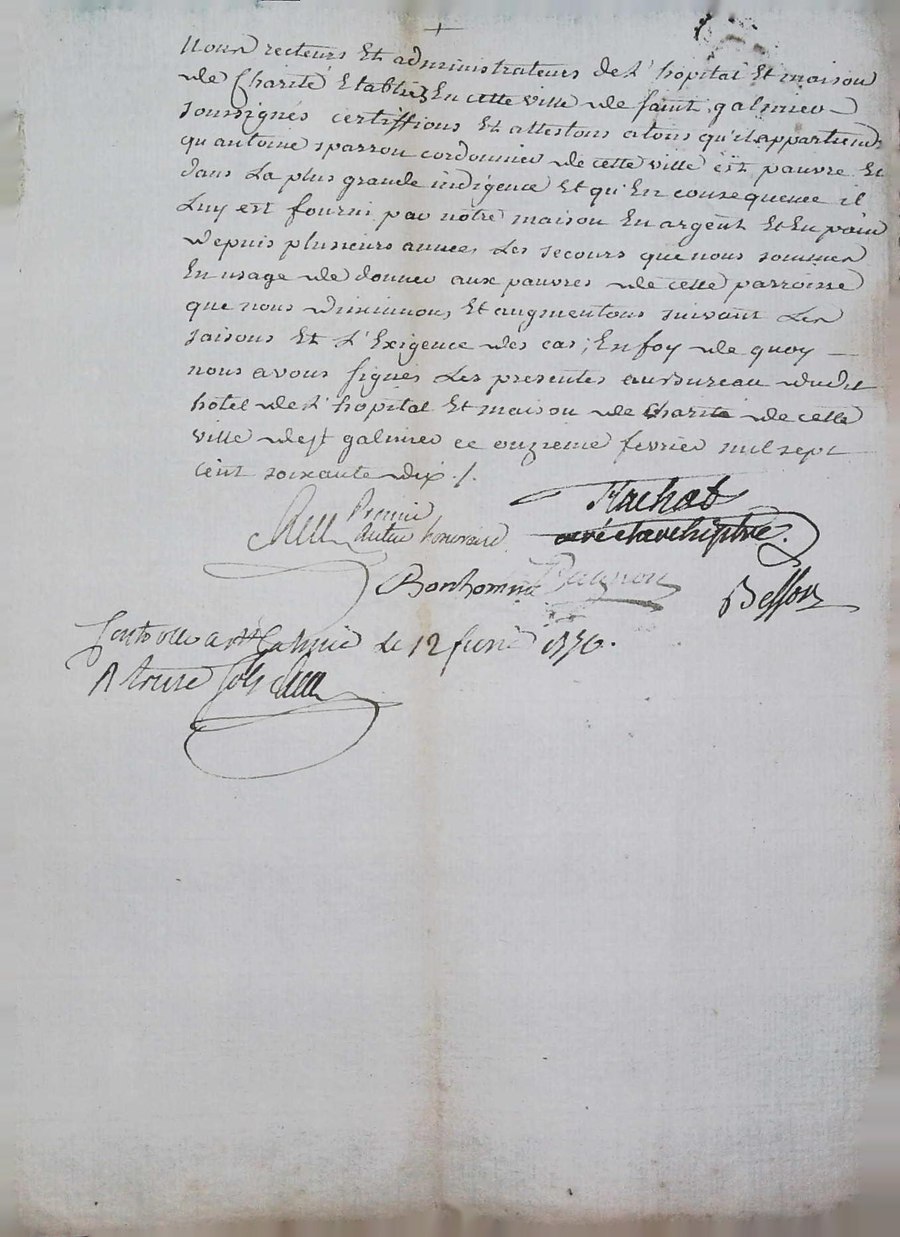 Nous recteurs Et administrateurs de L'hopital Et maison
de Charité Etablis En cette ville de saint galmier
soussignés certiffions Et attestons atous qu'il appartiendra
qu'antoine sparron cordonnier de cette ville est pauvre Et
dans La plus grande indigence Et qu'En consequence il
Luy est fourni par nôtre maison En argent Et En pain
depuis plusieurs années Les secours que nous sommes
En usage de donner aux pauvres de cette parroisse
que nous diminuons Et augmentons suivant Les
saisons Et L'Exigence des cas; En foy de quoy
nous avons signés Les presentes au bureau dudit
hotel de L'hôpital Et maison de Charité de cette
ville de st galmier ce onzieme fevrier mil sept
cent soixante dix ./.
Flachat
Premier
honoraire
curé et archiprtre.
Bonhomme
Besson
Controllé a st Galmier Le 12 fevrier 1770.